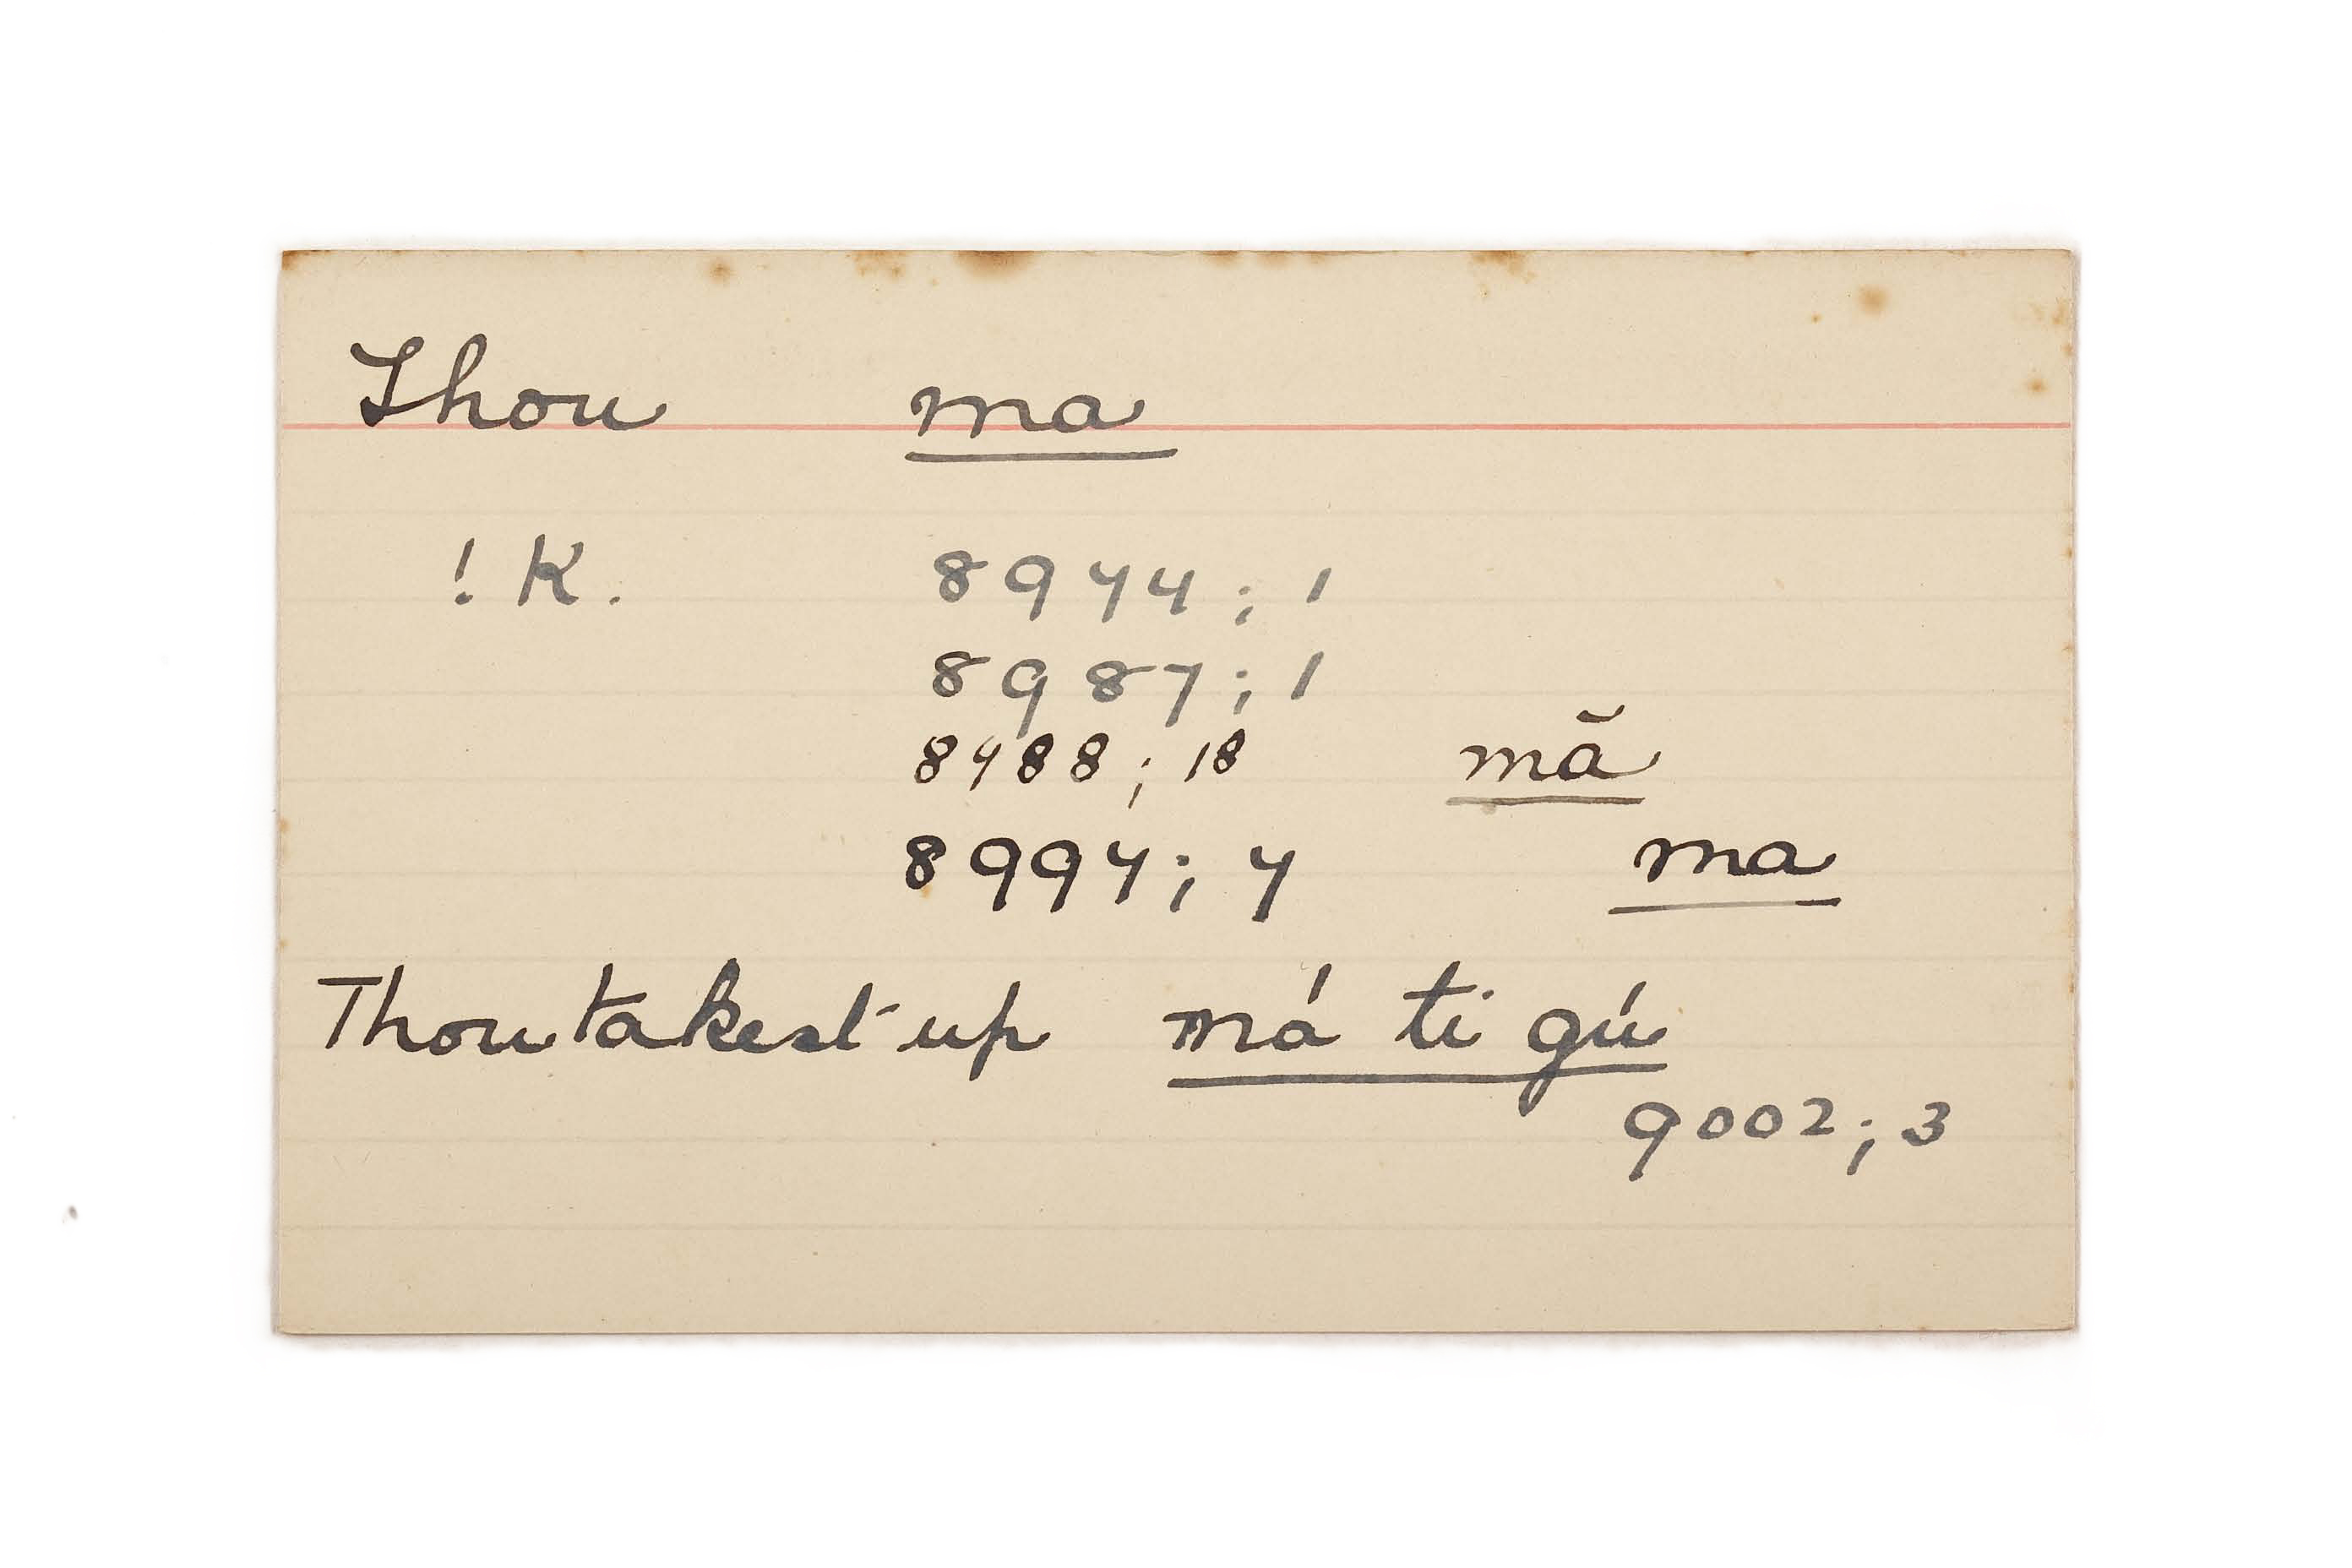 Thou ma
! K. 8944; 1
8987; 1
8988; 18 mă
8994; 4 ma
Thou takest up má ti gú
9002; 3